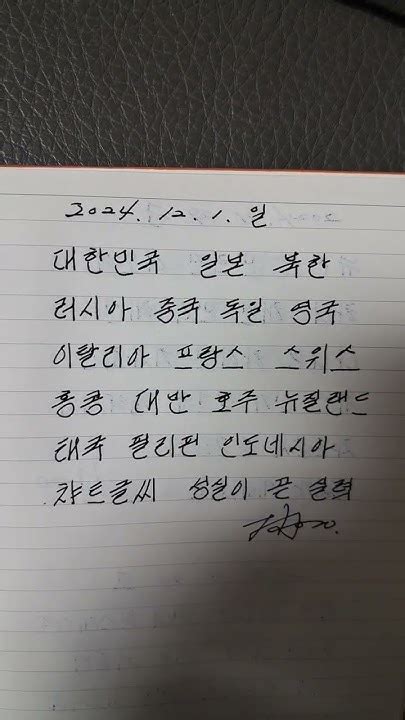 2024. 12. 1. 일
대한민국 일본 북한
러시아 중국 독일 영국
이탈리아 프랑스 스위스
홍콩 대만 호주 뉴질랜드
태국 필리핀 인도네시아
챠트글씨 성실이 곧 실력